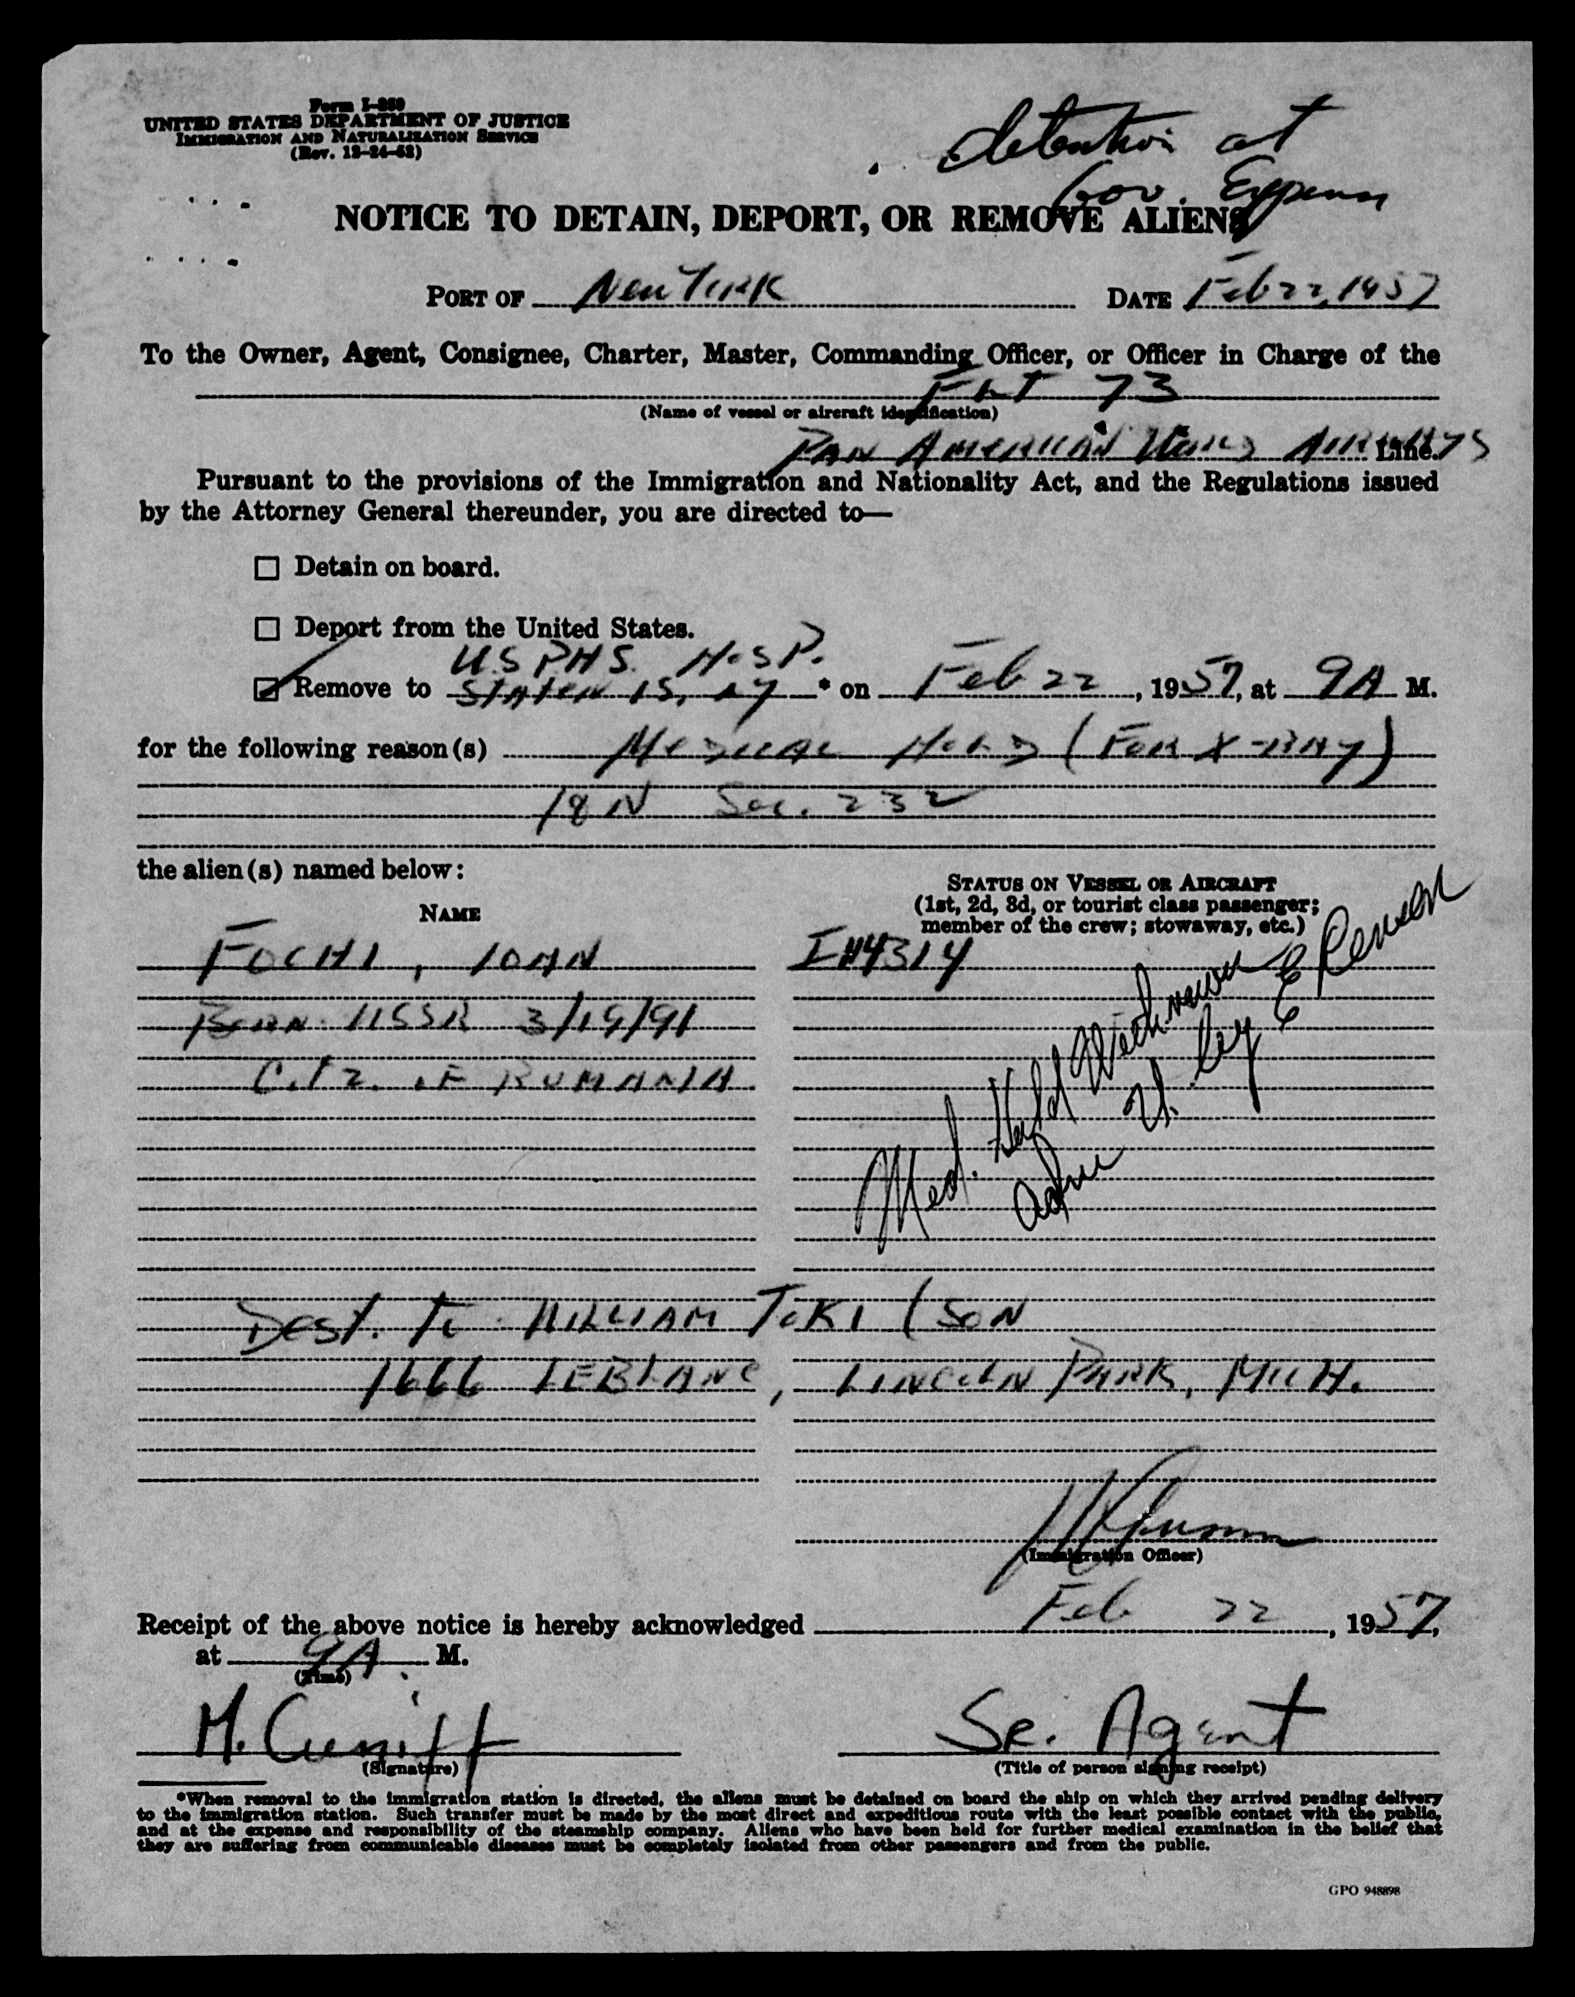 Form I-259
UNITED STATES DEPARTMENT OF JUSTICE
IMMIGRATION AND NATURALIZATION SERVICE
(Rev. 12-24-52)
detention at
Gov. Expense
NOTICE TO DETAIN, DEPORT, OR REMOVE ALIENS
PORT OF New York DATE Feb 22, 1957
To the Owner, Agent, Consignee, Charter, Master, Commanding Officer, or Officer in Charge of the
FLT 73
(Name of vessel or aircraft identification)
PAN AMERICAN WORLD AIRWAYS Line.
Pursuant to the provisions of the Immigration and Nationality Act, and the Regulations issued
by the Attorney General thereunder, you are directed to—
Detain on board.
Deport from the United States.
U.S PHS. HOSP.
Remove to STATEN IS, NY * on Feb 22, 1957, at 9A M.
for the following reason(s) MEDICAL HOLD (FOR X-RAY)
18 N Sec. 232
the alien(s) named below:
STATUS ON VESSEL OR AIRCRAFT
(1st, 2d, 3d, or tourist class passenger;
member of the crew; stowaway, etc.)
NAME
FOCHI, IOAN
BORN USSR 3/19/91
CITZ. OF RUMANIA
Med. Hold Withdrawn
adm
by E E
DEST. TO WILLIAM TOKI (SON
1666 LEBLANC, LINCOLN PARK, MICH.
(Immigration Officer)
Receipt of the above notice is hereby acknowledged Feb 22, 1957,
at 9A. M.
(Time)
M. Cuniff
Sr. Agent
(Signature)
(Title of person signing receipt)
*When removal to the immigration station is directed, the aliens must be detained on board the ship on which they arrived pending delivery
to the immigration station. Such transfer must be made by the most direct and expeditious route with the least possible contact with the public,
and at the expense and responsibility of the steamship company. Aliens who have been held for further medical examination in the belief that
they are suffering from communicable diseases must be completely isolated from other passengers and from the public.
GPO 948898